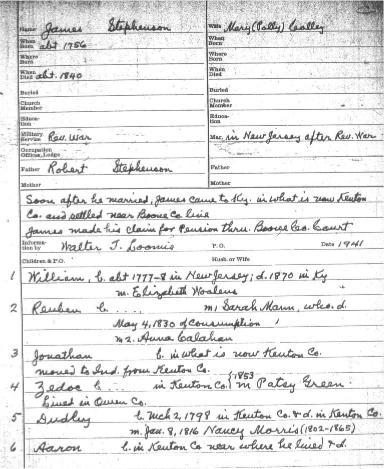 Name James Stephenson Wife Mary (Polly) Calley
When Born abt 1756 When Born
Where Born Where Born
When Died abt. 1840 When Died
Buried Buried
Church Member Church Member
Education Education
Military Service Rev. War Mar. in New Jersey after Rev. War
Occupation Offices, Lodge
Father Robert Stephenson Father
Mother Mother
Soon after he married, James came to Ky. in what is now Kenton
Co. and settled near Boone Co line
James made his claim for Pension thru. Boone Co. Court
Information by Walter T. Loomis P.O. Date 1941
Children & P.O. Husb. or Wife
1 William, b. abt 1777-8 in New Jersey; d. 1870 in Ky
m. Elizabeth
2 Reuben b. .... m, Sarah Mann, who d.
May 4, 1830 of Consumption
m2. Anna Calahan
3 Jonathan b. in what is now Kenton Co.
moved to Ind. from Kenton Co.
4 Zedoc b... in Kenton Co. m 1853 Patsy Green
Lived in Owen Co.
5 Dudley b. Mch 2, 1798 in Kenton Co. & d. in Kenton Co.
m. Jan. 8, 1816 Nancy Morris (1802-1865)
6 Aaron b. in Kenton Co near where he lived & d.